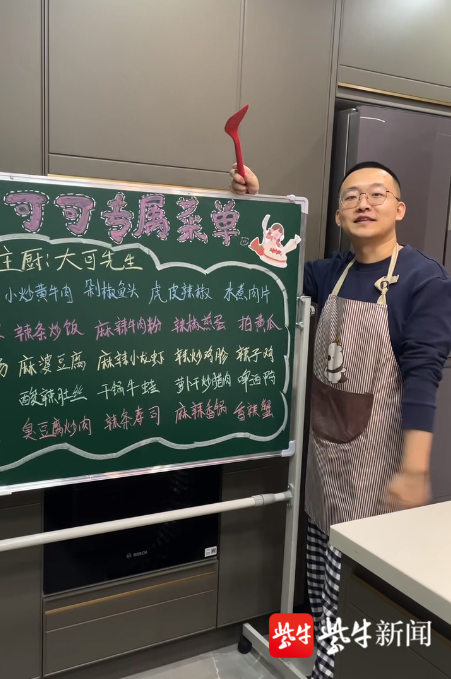 可可专属菜单。
主厨:大可先生
小炒黄牛肉 剁椒鱼头 虎皮辣椒 水煮肉片
辣条炒饭 麻辣牛肉粉 辣椒煎蛋 拍黄瓜
汤 麻婆豆腐 麻辣小龙虾 辣炒鸡胗 辣子鸡
酸辣肚丝 干锅牛蛙 萝卜干炒腊肉 啤酒鸭
臭豆腐炒肉 辣条寿司 麻辣香锅 香辣蟹
BOSCH
紫牛 紫牛新闻